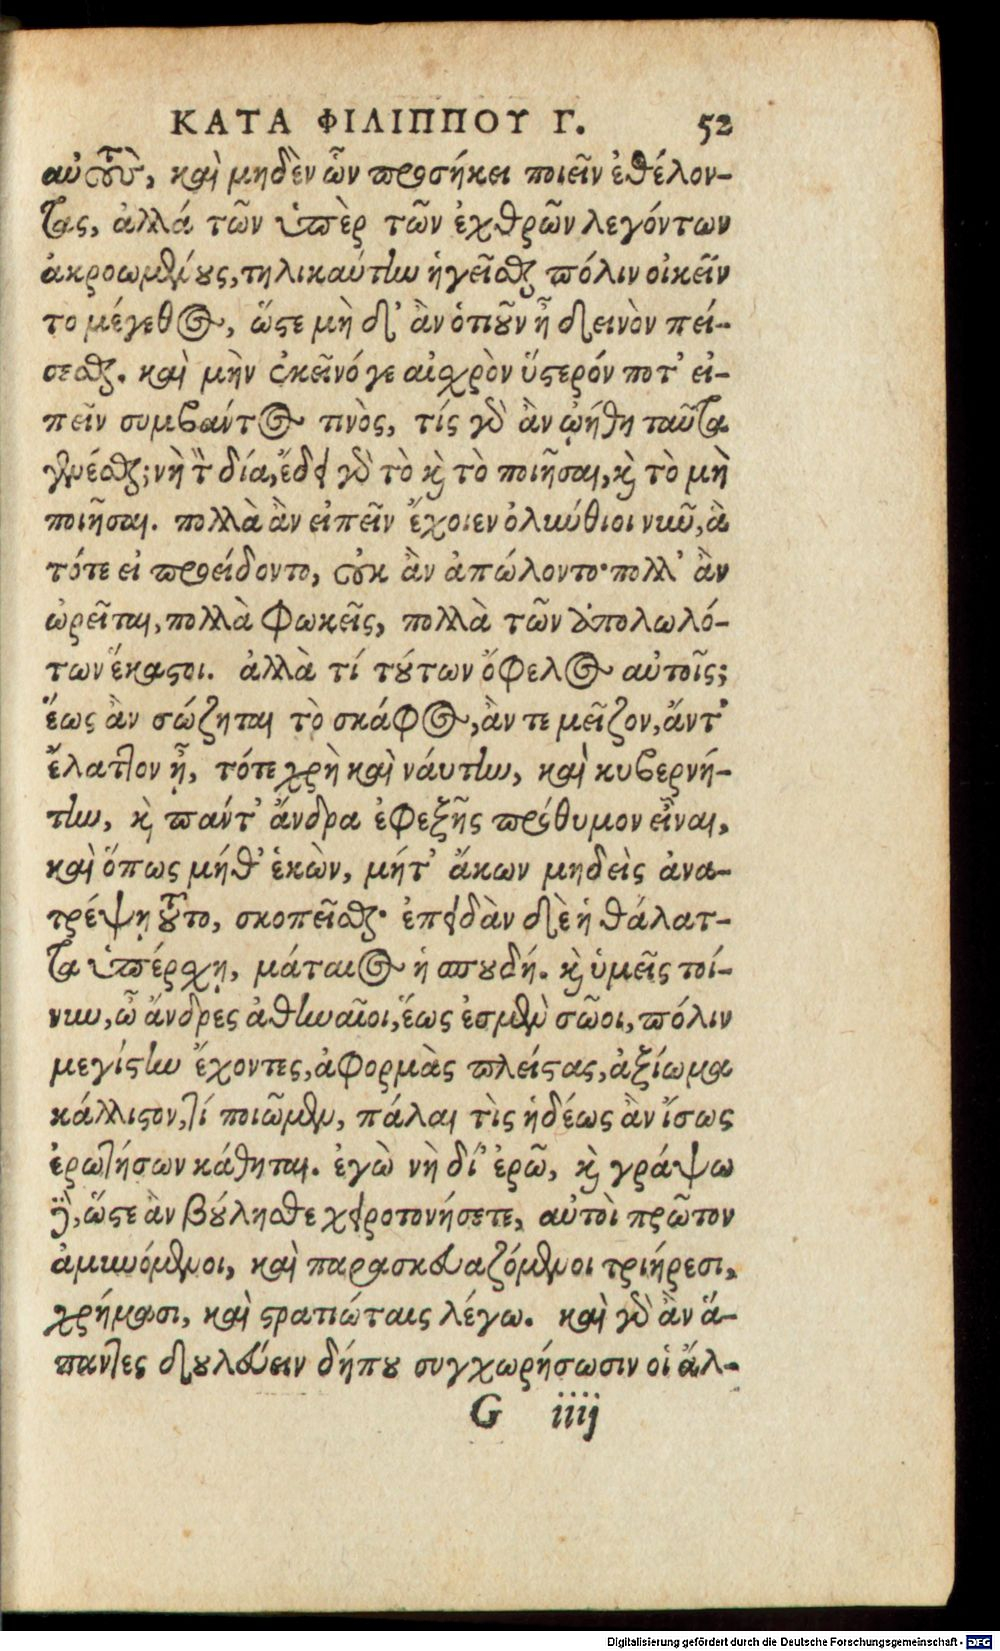 ΚΑΤΑ ΦΙΛΙΠΠΟΥ Γ. 52
αὑτοὺς, καὶ μηδὲν ὧν προσήκει ποιεῖν ἐθέλον-
τας, ἀλλά τῶν ὑπὲρ τῶν ἐχθρῶν λεγόντων
ἀκροωμένους, τηλικαύτην ἡγεῖσθαι πόλιν οἰκεῖν
το μέγεθος, ὥστε μὴ δ' ἂν ὁτιοῦν ᾖ δεινὸν πεί-
σεσθαι. καὶ μὴν ἐκεῖνό γε αἰσχρὸν ὕστερόν ποτ' εἰ-
πεῖν συμβάντος τινὸς, τίς γὰρ ἂν ᾠήθη ταῦτα
γενέσθαι; νὴ τὸν δία, ἔδει γὰρ τὸ καὶ τὸ ποιῆσαι, καὶ τὸ μὴ
ποιῆσαι. πολλὰ ἂν εἰπεῖν ἔχοιεν ὀλυνθιοι νῦν, ἃ
τότε εἰ προείδοντο, οὐκ ἂν ἀπώλοντο· πολλ' ἂν
ὠρεῖται, πολλὰ Φωκεῖς, πολλὰ τῶν ἀπολωλό-
των ἕκαστοι. ἀλλὰ τί τούτων ὄφελος αὐτοῖς;
ἕως ἂν σώζηται τὸ σκάφος, ἂν τε μεῖζον, ἄντ'
ἔλαττον ᾖ, τότε χρὴ καὶ ναύτην, καὶ κυβερνή-
την, καὶ πάντ' ἄνδρα ἐφεξῆς πρόθυμον εἶναι,
καὶ ὅπως μήθ' ἑκὼν, μήτ' ἄκων μηδεὶς ἀνα-
τρέψῃ τοῦτο, σκοπεῖσθαι· ἐπειδὰν δὲ ἡ θάλατ-
τα ὑπέρσχῃ, μάταιος ἡ σπουδή. καὶ ὑμεῖς τοί-
νυν, ὦ ἄνδρες ἀθηναῖοι, ἕως ἐσμὲν σῶοι, πόλιν
μεγίστην ἔχοντες, ἀφορμὰς πλείστας, ἀξίωμα
κάλλιστον, τί ποιῶμεν, πάλαι τὶς ἡδέως ἂν ἴσως
ἐρωτήσων κάθηται. ἐγὼ νὴ δί' ἐρῶ, καὶ γράψω
δὲ, ὥστε ἂν βούλησθε χειροτονήσετε, αὐτὸὶ πρῶτον
ἀμυνόμενοι, καὶ παρασκευαζόμενοι τριήρεσι,
χρήμασι, καὶ στρατιώταις λέγω. καὶ γὰρ ἂν ἅ-
παντες δουλεύειν δήπου συγχωρήσωσιν οἱ ἄλ-
G iiij
Digitalisierung gefördert durch die Deutsche Forschungsgemeinschaft - DFG